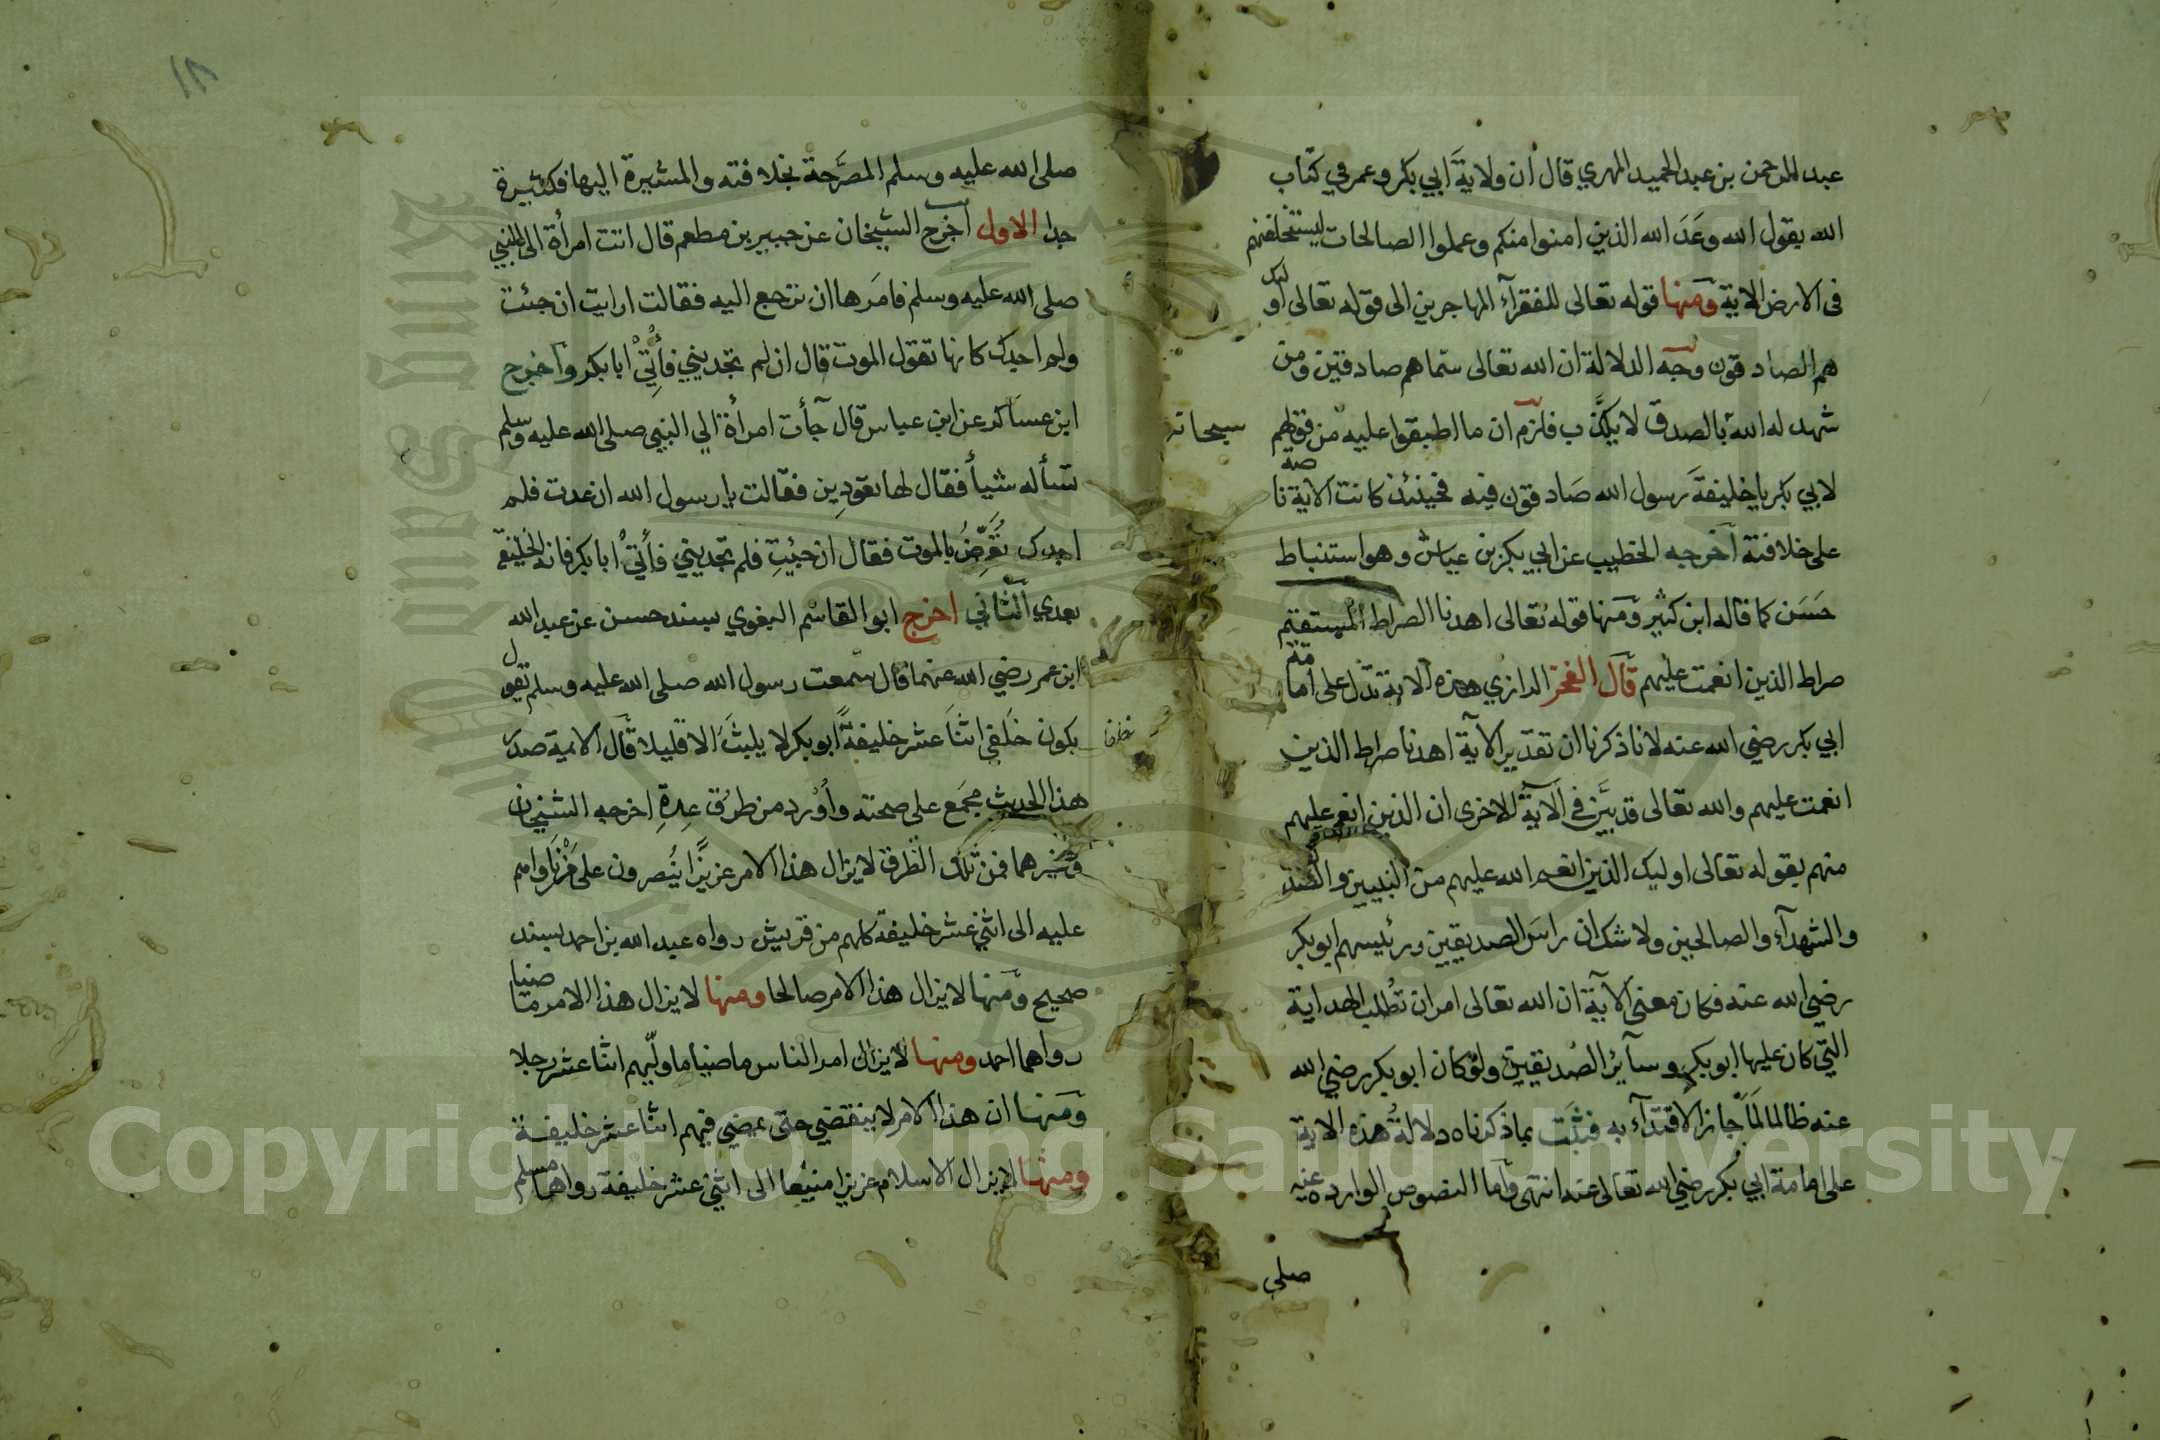 عبد الرحمن بن عبد الحميد المهري قال ان ولاية ابي بكر وعمر في كتاب
الله يقول الله وعد الله الذين امنوا منكم وعملوا الصالحات ليستخلفنهم
فى الارض الاية ومنها قوله تعالى للفقرآء المهاجرين الى قوله تعالى اوليك
هم الصادقون وجه الدلالة ان الله تعالى سماهم صادقين ومن
شهد له الله بالصدق لا يكذب فلزم ان ما اطبقوا عليه من قولهم
سبحانه
لابي بكر يا خليفة رسول الله صادقون فيه فحينئذ كانت الاية ناصة
على خلافته اخرجه الخطيب عن ابي بكر بن عياش وهو استنباط
حسن كما قاله ابن كثير ومنها قوله تعالى اهدنا الصراط المستقيم
صراط الذين انعمت عليهم قال الفخر الرازي هذه الاية تدل على امامة
ابي بكر رضي الله عنه لانا ذكرنا ان تقدير الآية اهدنا صراط الذين
انعمت عليهم والله تعالى قد بين في الآية الاخرى ان الذين انعم عليهم
منهم بقوله تعالى اوليك الذين انعم الله عليهم من النبيين
والشهدآء والصالحين ولا شك ان راس الصديقين ورئيسهم ابو بكر
رضي الله عنه فكان معنى الآية ان الله تعالى امر ان تطلب الهداية
التي كان عليها ابو بكر وسآئر الصديقين ولو كان ابو بكر رضي الله
عنه ظالما لما جاز الاقتدآء به فثبت بما ذكرناه دلالة هذه الاية
على امامة ابي بكر رضي الله تعالى عنه انتهى واما النصوص الواردة عنه
صلى
١٨
صلى الله عليه وسلم المصرحة بخلافته والمشيرة اليها فكثيرة
جدا الاول اخرج الشيخان عن جبير بن مطعم قال اتت امرأة الى النبي
صلى الله عليه وسلم فامرها ان ترجع اليه فقالت ارايت ان جئت
ولم اجدك كانها تقول الموت قال ان لم تجديني فأتي ابا بكر واخرج
ابن عساكر عن ابن عباس قال جآت امرأة الي النبي صلى الله عليه وسلم
تسأله شيأ فقال لها تعودين فقالت يا رسول الله ان عدت فلم
اجدك تعرض بالموت فقال ان جيت فلم تجديني فأتي ابا بكر فانه الخليفة
بعدي الثاني اخرج ابو القاسم البغوي بسند حسن عن عبد الله
ابن عمر رضي الله عنهما قال سمعت رسول الله صلى الله عليه وسلم يقول
يكون خلفي اثنا عشر خليفة ابو بكر لا يلبث الا قليلا قال الايمة صدر
هذا الحديث مجمع على صحته واورد من طرق عدة اخرجه الشيخان
وغيرهما فمن تلك الطرق لا يزال هذا الامر عزيزا ينصرون على من ناواهم
عليه الى اثني عشر خليفة كلهم من قريش رواه عبد الله بن احمد بسند
صحيح ومنها لا يزال هذا الامر صالحا ومنها لا يزال هذا الامر ماضيا
رواهما احمد ومنها لا يزال امر الناس ماضيا ما وليهم اثنا عشر رجلا
ومنها ان هذا الامر لا ينقضي حتى يمضي فيهم اثنا عشر خليفة
ومنها لا يزال الاسلام عزيزا منيعا الى اثني عشر خليفة رواهما مسلم
Copyright © King Saud University